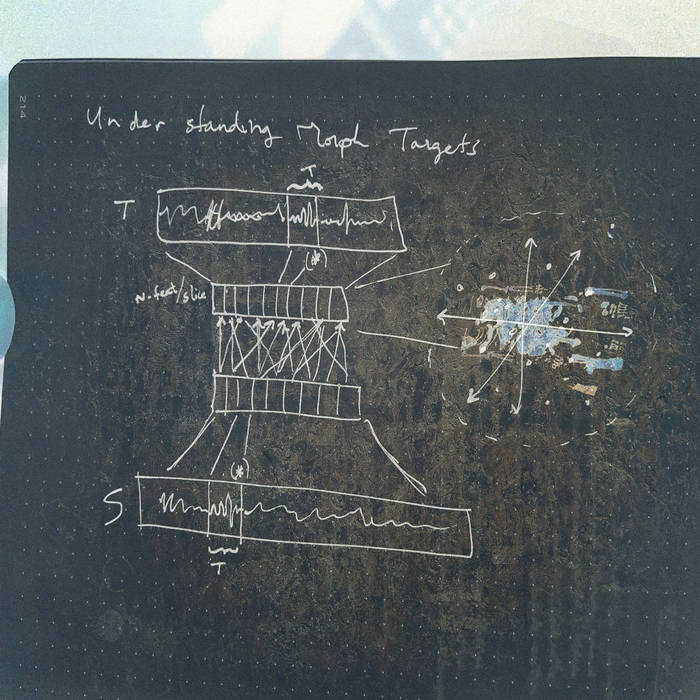 214
Understanding Morph Targets
T
T
(*)
N.feat/slice
(*)
S
T